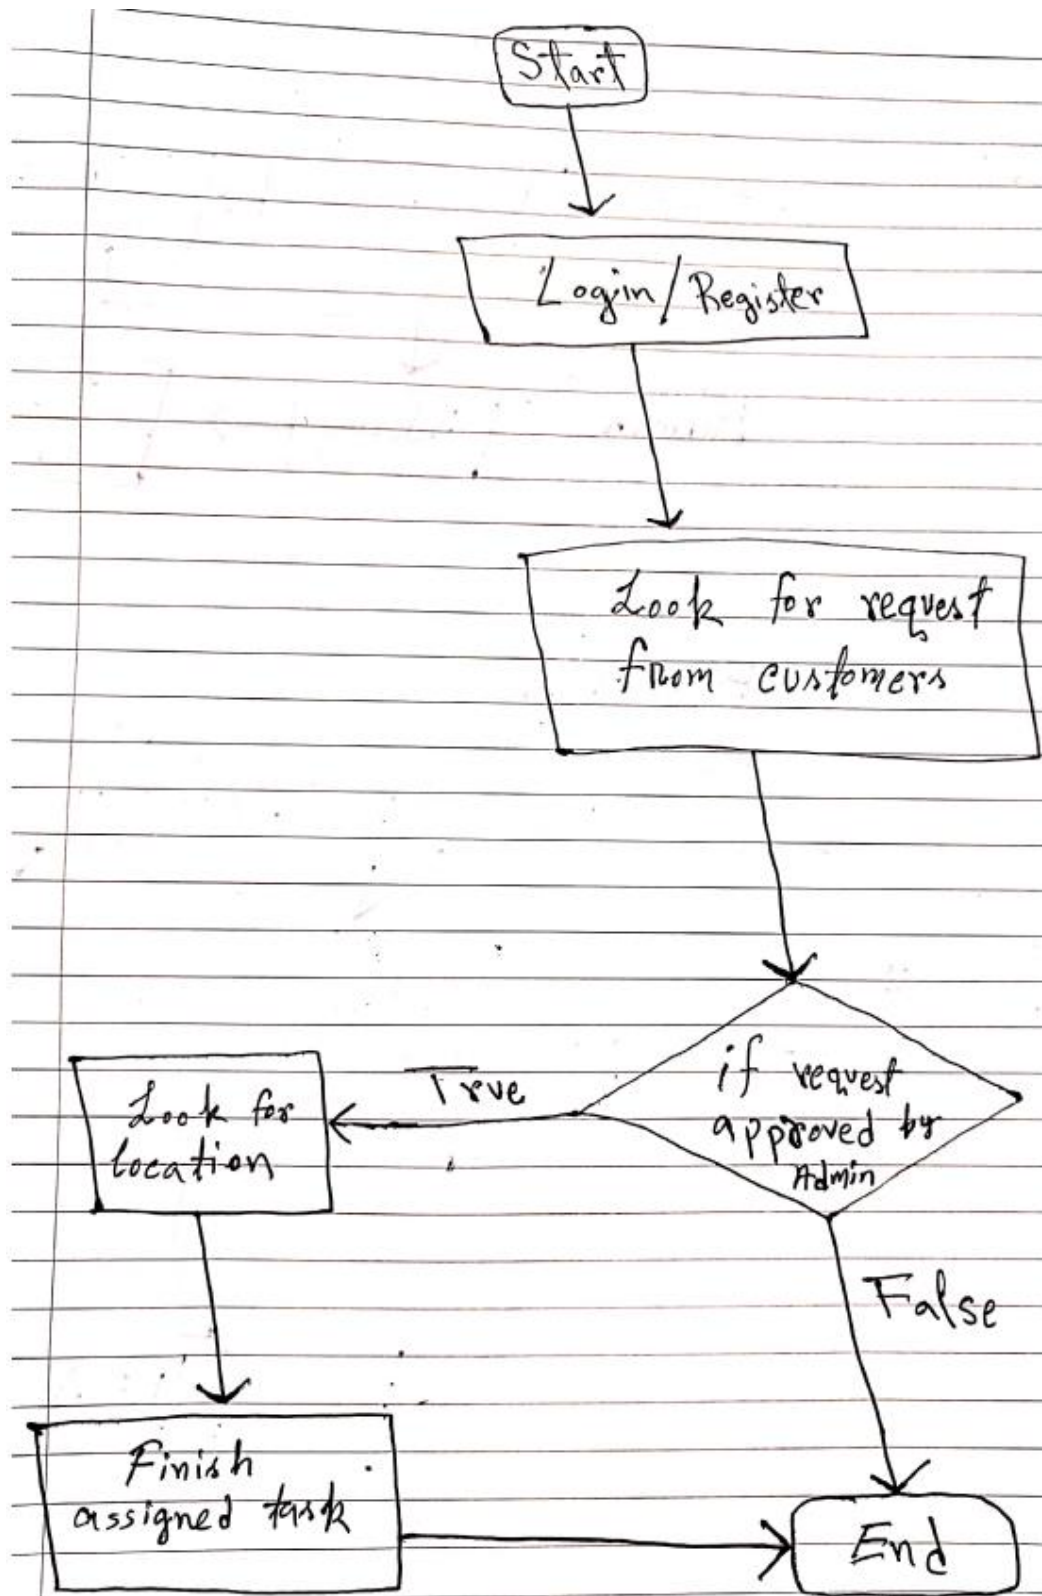 Start
Login/Register
Look for request
from customers
if request
approved by
Admin
True
Look for
location
False
Finish
assigned task
End